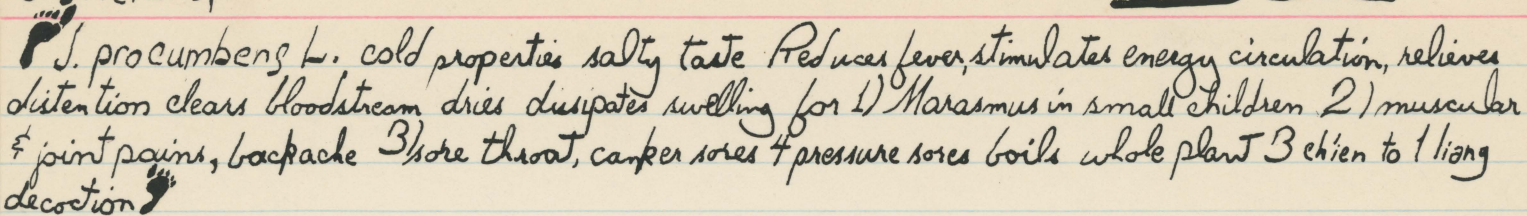 J. procumbens L. cold properties salty taste Reduces fever, stimulates energy circulation, relieves
distention clears bloodstream dries dissipates swelling for 1) Marasmus in small children 2) muscular
& joint pains, backache 3) sore throat, canker sores 4 pressure sores boils whole plant 3 ch'ien to 1 liang
decoction